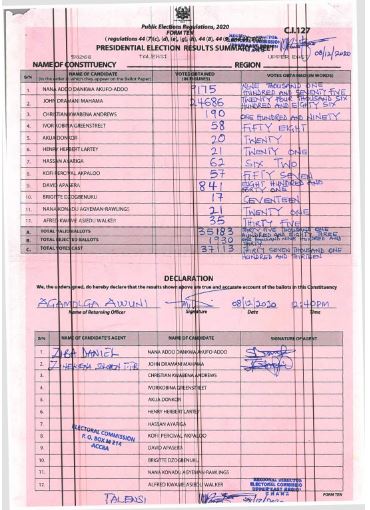 Public Elections Regulations, 2020
FORM TEN
C.I.127
PRESIDENTIAL ELECTION RESULTS SUMMARY SHEET
08/12/2020
TALENSI
UPPER EAST
NAME OF CONSTITUENCY
REGION
S/N NAME OF CANDIDATE VOTES OBTAINED (IN FIGURES) VOTES OBTAINED (IN WORDS)
(In the order in which they appear on the Ballot Paper)
1. NANA ADDO DANKWA AKUFO-ADDO 9175 NINE THOUSAND ONE HUNDRED AND SEVENTY FIVE
2. JOHN DRAMANI MAHAMA 24686 TWENTY FOUR THOUSAND SIX HUNDRED AND EIGHTY SIX
3. CHRISTIAN KWABENA ANDREWS 190 ONE HUNDRED AND NINETY
4. IVOR KOBINA GREENSTREET 58 FIFTY EIGHT
5. AKUA DONKOR 20 TWENTY
6. HENRY HERBERT LARTEY 21 TWENTY ONE
7. HASSAN AYARIGA 62 SIX TWO
8. KOFI PERCIVAL AKPALOO 57 FIFTY SEVEN
9. DAVID APASERA 841 EIGHT HUNDRED AND FORTY ONE
10. BRIGITTE DZOGBENUKU 17 SEVENTEEN
11. NANA KONADU AGYEMAN-RAWLINGS 21 TWENTY ONE
12. ALFRED KWAME ASIEDU WALKER 35 THIRTY FIVE
A. TOTAL VALID BALLOTS 35183 THIRTY FIVE THOUSAND ONE HUNDRED AND EIGHTY THREE
B. TOTAL REJECTED BALLOTS 1930 ONE THOUSAND NINE HUNDRED AND THIRTY
C. TOTAL VOTES CAST 37113 THIRTY SEVEN THOUSAND ONE HUNDRED AND THIRTEEN
DECLARATION
We, the undersigned, do hereby declare that the results shown above are true and accurate account of the ballots in this Constituency
AGAMOLGA AWUNI 08/12/2020 2:40PM
Name of Returning Officer Signature Date Time
S/N NAME OF CANDIDATE'S AGENT NAME OF CANDIDATE SIGNATURE OF AGENT
1. ZIBA DANIEL NANA ADDO DANKWA AKUFO-ADDO
2. JOHN DRAMANI MAHAMA
3. CHRISTIAN KWABENA ANDREWS
4. IVOR KOBINA GREENSTREET
5. AKUA DONKOR
6. HENRY HERBERT LARTEY
7. HASSAN AYARIGA
8. KOFI PERCIVAL AKPALOO
9. DAVID APASERA
10. BRIGITTE DZOGBENUKU
11. NANA KONADU AGYEMAN-RAWLINGS
12. ALFRED KWAME ASIEDU WALKER
ELECTORAL COMMISSION
P. O. BOX M 214
ACCRA
REGIONAL DIRECTOR
ELECTORAL COMMISSION
UPPER EAST REGION
GHANA
TALENSI
FORM TEN